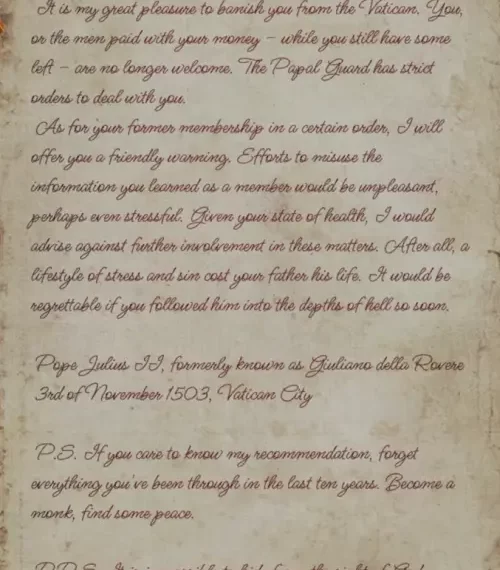 It is my great pleasure to banish you from the Vatican. You,
or the men paid with your money – while you still have some
left – are no longer welcome. The Papal Guard has strict
orders to deal with you.
As for your former membership in a certain order, I will
offer you a friendly warning. Efforts to misuse the
information you learned as a member would be unpleasant,
perhaps even stressful. Given your state of health, I would
advise against further involvement in these matters. After all, a
lifestyle of stress and sin cost your father his life. It would be
regrettable if you followed him into the depths of hell so soon.
Pope Julius II, formerly known as Giuliano della Rovere
3rd of November 1503, Vatican City
P.S. If you care to know my recommendation, forget
everything you've been through in the last ten years. Become a
monk, find some peace.